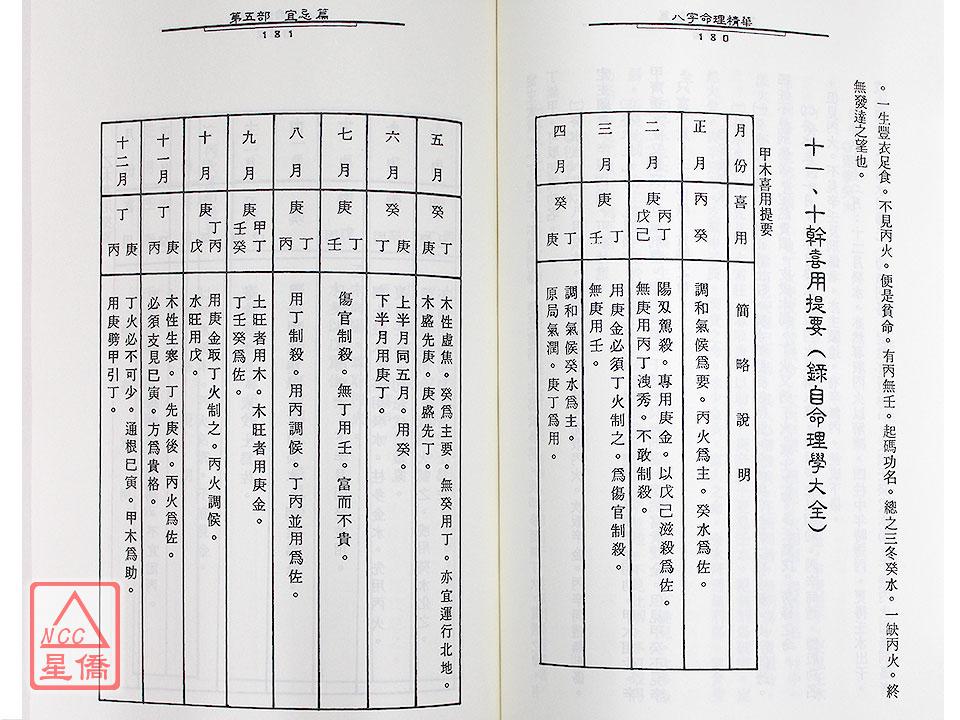 八字命理精華
180
。一生豐衣足食。不見丙火。便是貧命。有丙無壬。起碼功名。總之三冬癸水。一缺丙火。終
無發達之望也。
十一、十幹喜用提要（錄自命理學大全）
甲木喜用提要
月份
喜用
簡略說明
正月
丙
癸
調和氣候爲要。丙火爲主。癸水爲佐。
二月
庚
丙丁
戊己
陽刄駕殺。專用庚金。以戊己滋殺爲佐。
無庚用丙丁洩秀。不敢制殺。
三月
庚
丁
壬
用庚金必須丁火制之。爲傷官制殺。
無庚用壬。
四月
癸
丁
庚
調和氣候癸水爲主。
原局氣潤。庚丁爲用。
第五部 宜忌篇
181
五月
癸
丁
庚
木性虛焦。癸爲主要。無癸用丁。亦宜運行北地。
木盛先庚。庚盛先丁。
六月
癸
庚
丁
上半月同五月。用癸。
下半月用庚丁。
七月
庚
丁
壬
傷官制殺。無丁用壬。富而不貴。
八月
庚
丁
丙
用丁制殺。用丙調候。丁丙並用爲佐。
九月
庚
甲丁
壬癸
土旺者用木。木旺者用庚金。
丁壬癸爲佐。
十月
庚
丁丙
戊
用庚金取丁火制之。丙火調候。
水旺用戊。
十一月
丁
庚
丙
木性生寒。丁先庚後。丙火爲佐。
必須支見巳寅。方爲貴格。
十二月
丁
庚
丙
丁火必不可少。通根巳寅。甲木爲助。
用庚劈甲引丁。
NCC
星僑